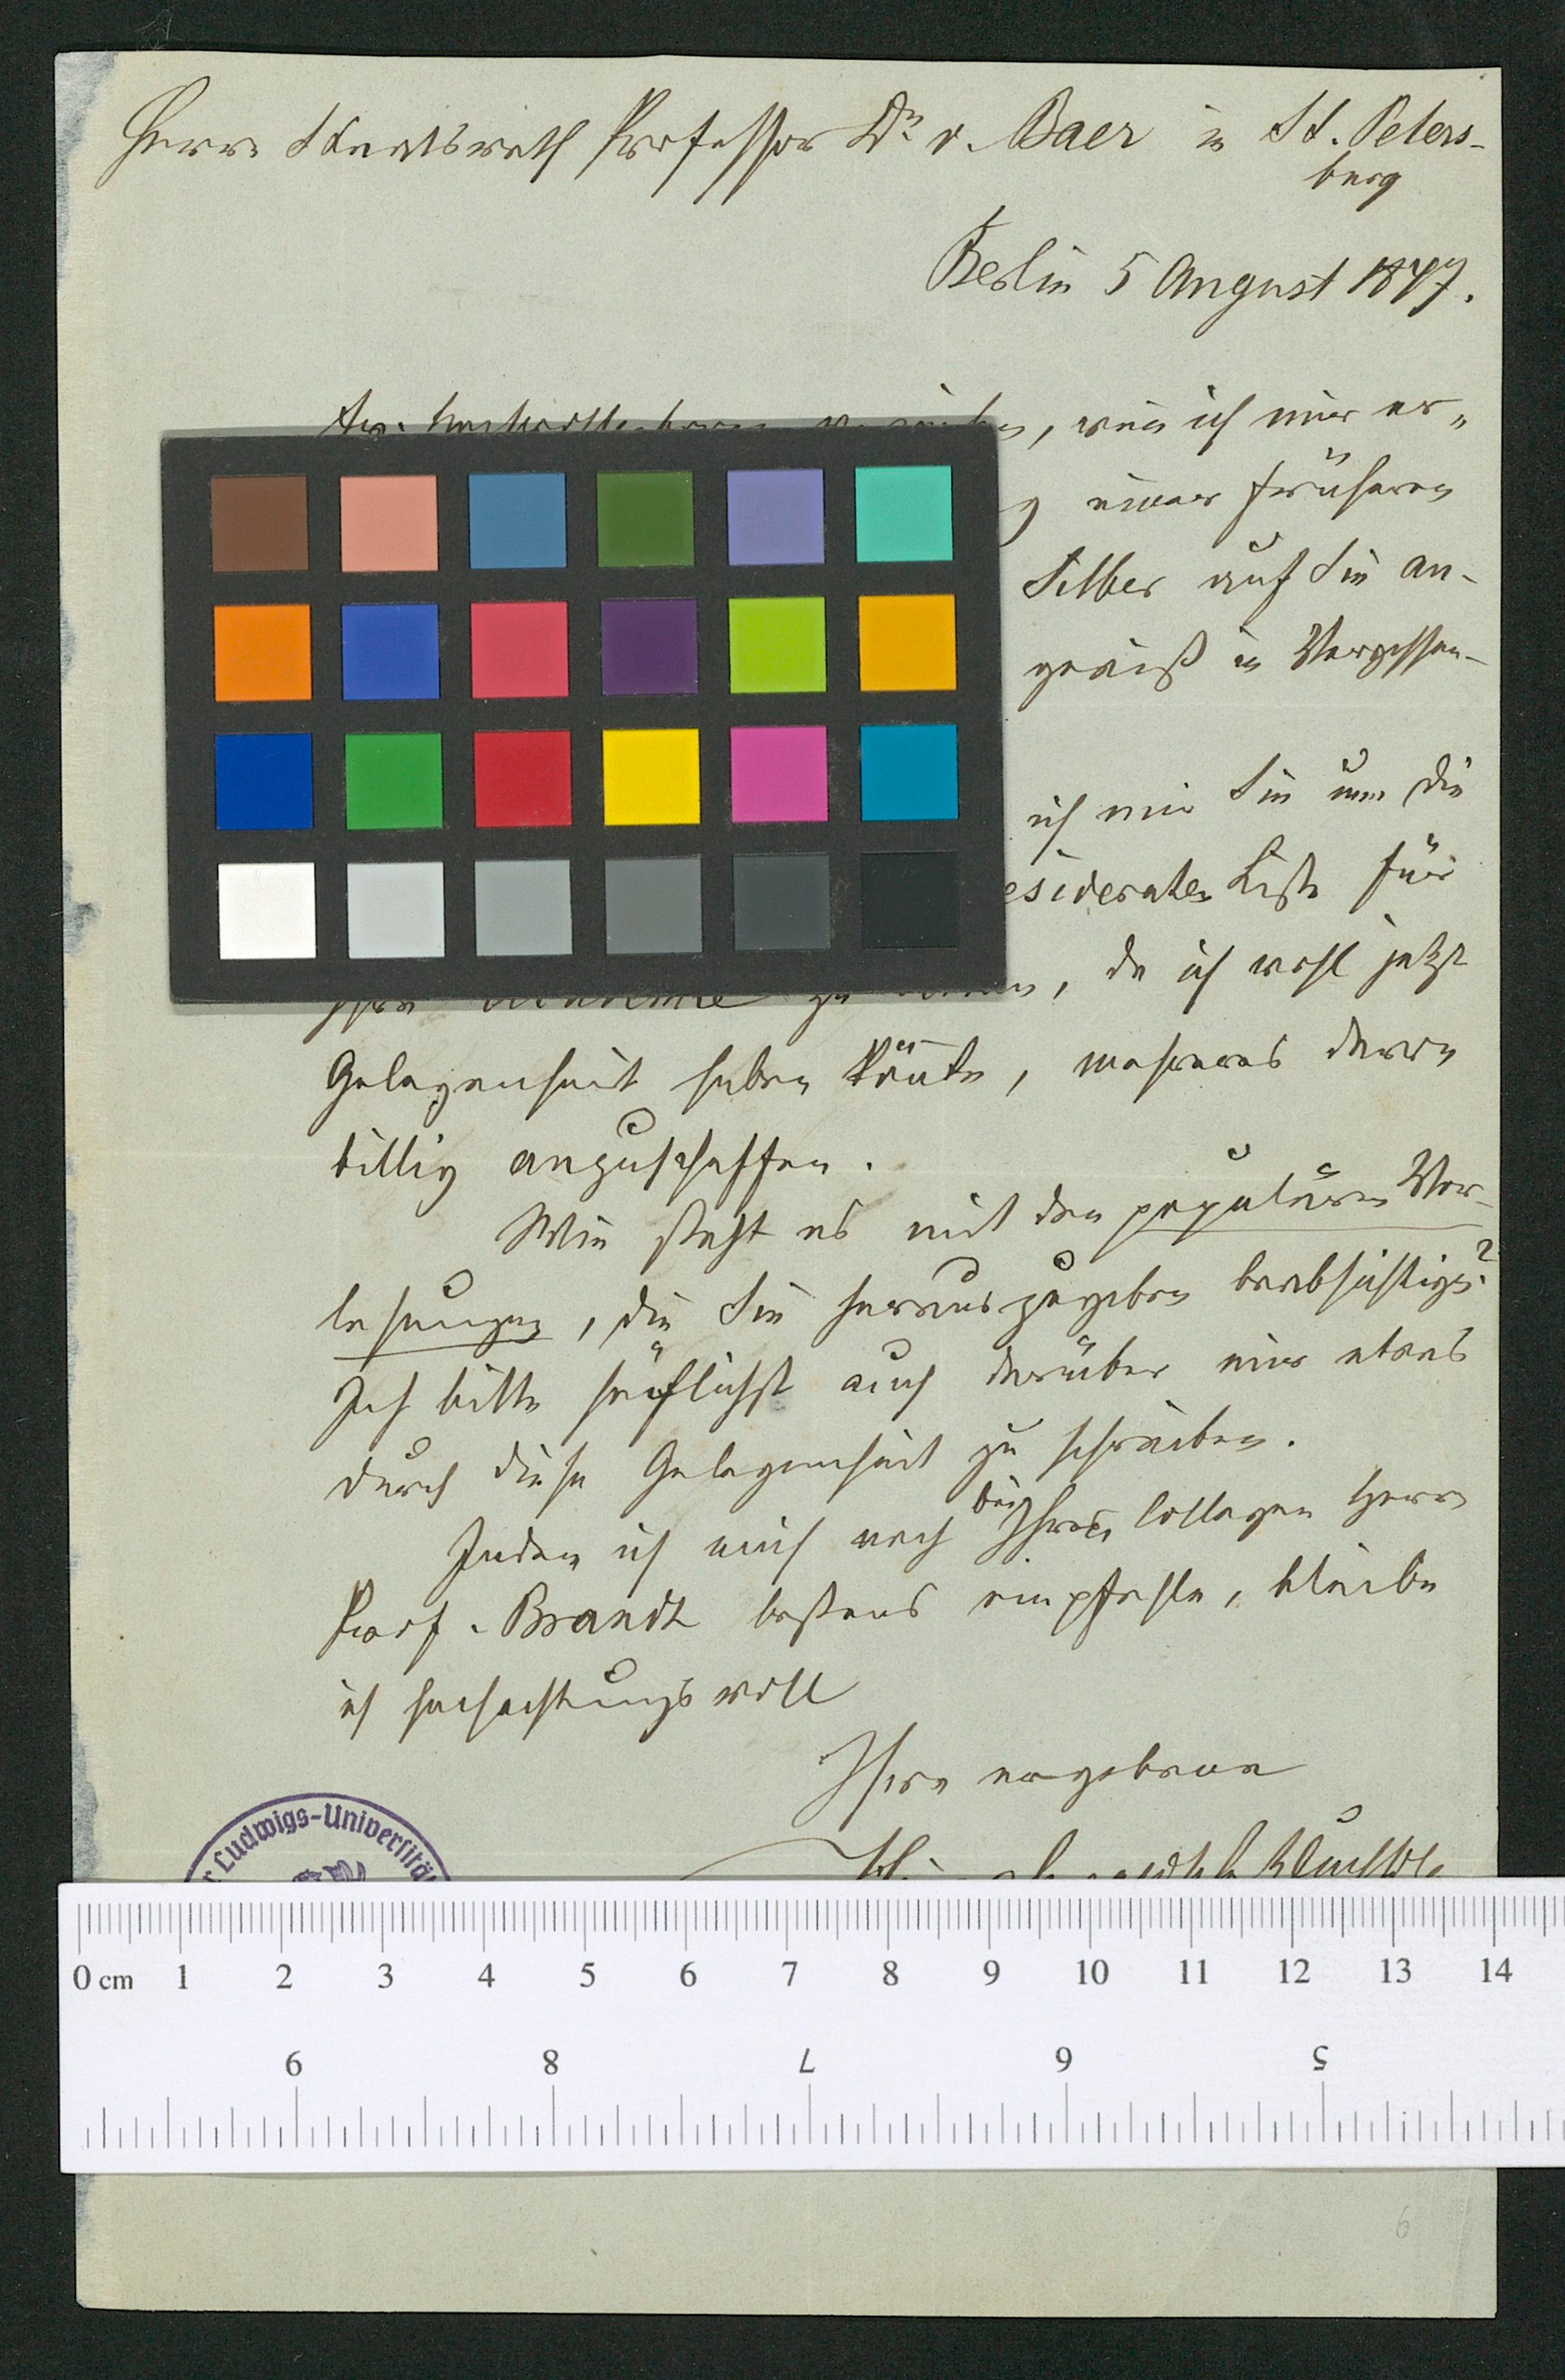 Herrn Staatsrath Professor Dr. v. Baer in St. Peters-
burg
Berlin 5 August 1847.
Ew. verzeihen, wenn ich mir er-
g einer früheren
Silber auf Sie an-
gewiß in Vergessen-
ich mir Sie um die
esideraten Liste für
Ihre Academie zu bitten, da ich wohl jetzt
Gelegenheit haben könte, mehreres davon
billig anzuschaffen.
Wie steht es mit den populären Vor-
lesungen, die Sie herauszugeben beabsichtigen?
Ich bitte höflichst auch darüber mir etwas
durch diese Gelegenheit zu schreiben.
Indem ich mich noch bei Ihrem Collegen Herrn
Prof. Brandt bestens empfehle, bleibe
ich hochachtungsvoll
Ihr ergebener
Ludwigs-Universitä
0 cm 1 2 3 4 5 6 7 8 9 10 11 12 13 14
9 8 7 6 5
6